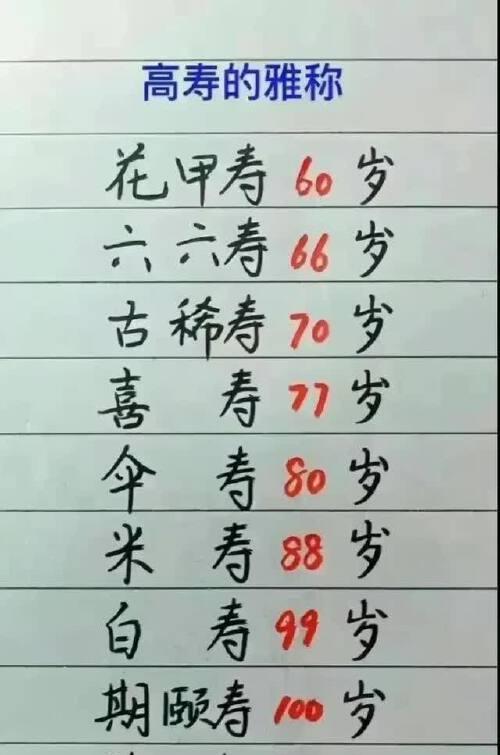 高寿的雅称
花甲寿 60 岁
六六寿 66 岁
古稀寿 70 岁
喜 寿 77 岁
伞 寿 80 岁
米 寿 88 岁
白 寿 99 岁
期颐寿 100 岁